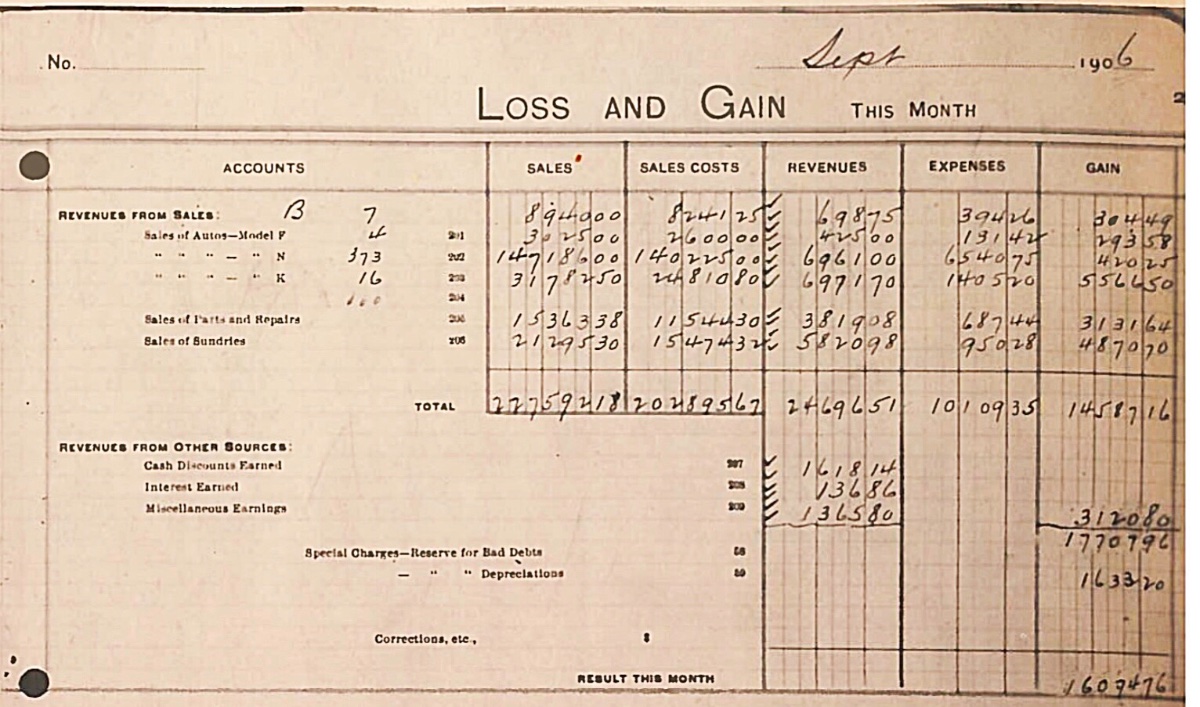 No. Sept 1906
LOSS AND GAIN THIS MONTH
2
ACCOUNTS SALES SALES COSTS REVENUES EXPENSES GAIN
REVENUES FROM SALES: B 7 894000 824125 69875 39426 30449
Sales of Autos—Model F 4 201 302500 260000 42500 13142 29358
" " " — " N 373 202 14718600 14022500 696100 654075 42025
" " " — " K 16 203 3178250 2481080 697170 140520 556650
204
Sales of Parts and Repairs 205 1536338 1154430 381908 68744 313164
Sales of Sundries 206 2129530 1547432 582098 95028 487070
TOTAL 22759218 20289567 2469651 1010935 1458716
REVENUES FROM OTHER SOURCES:
Cash Discounts Earned 207 161814
Interest Earned 208 13686
Miscellaneous Earnings 209 136580 312080
1770796
Special Charges—Reserve for Bad Debts 58
— " " Depreciations 59 163320
Corrections, etc., $
RESULT THIS MONTH 1607476